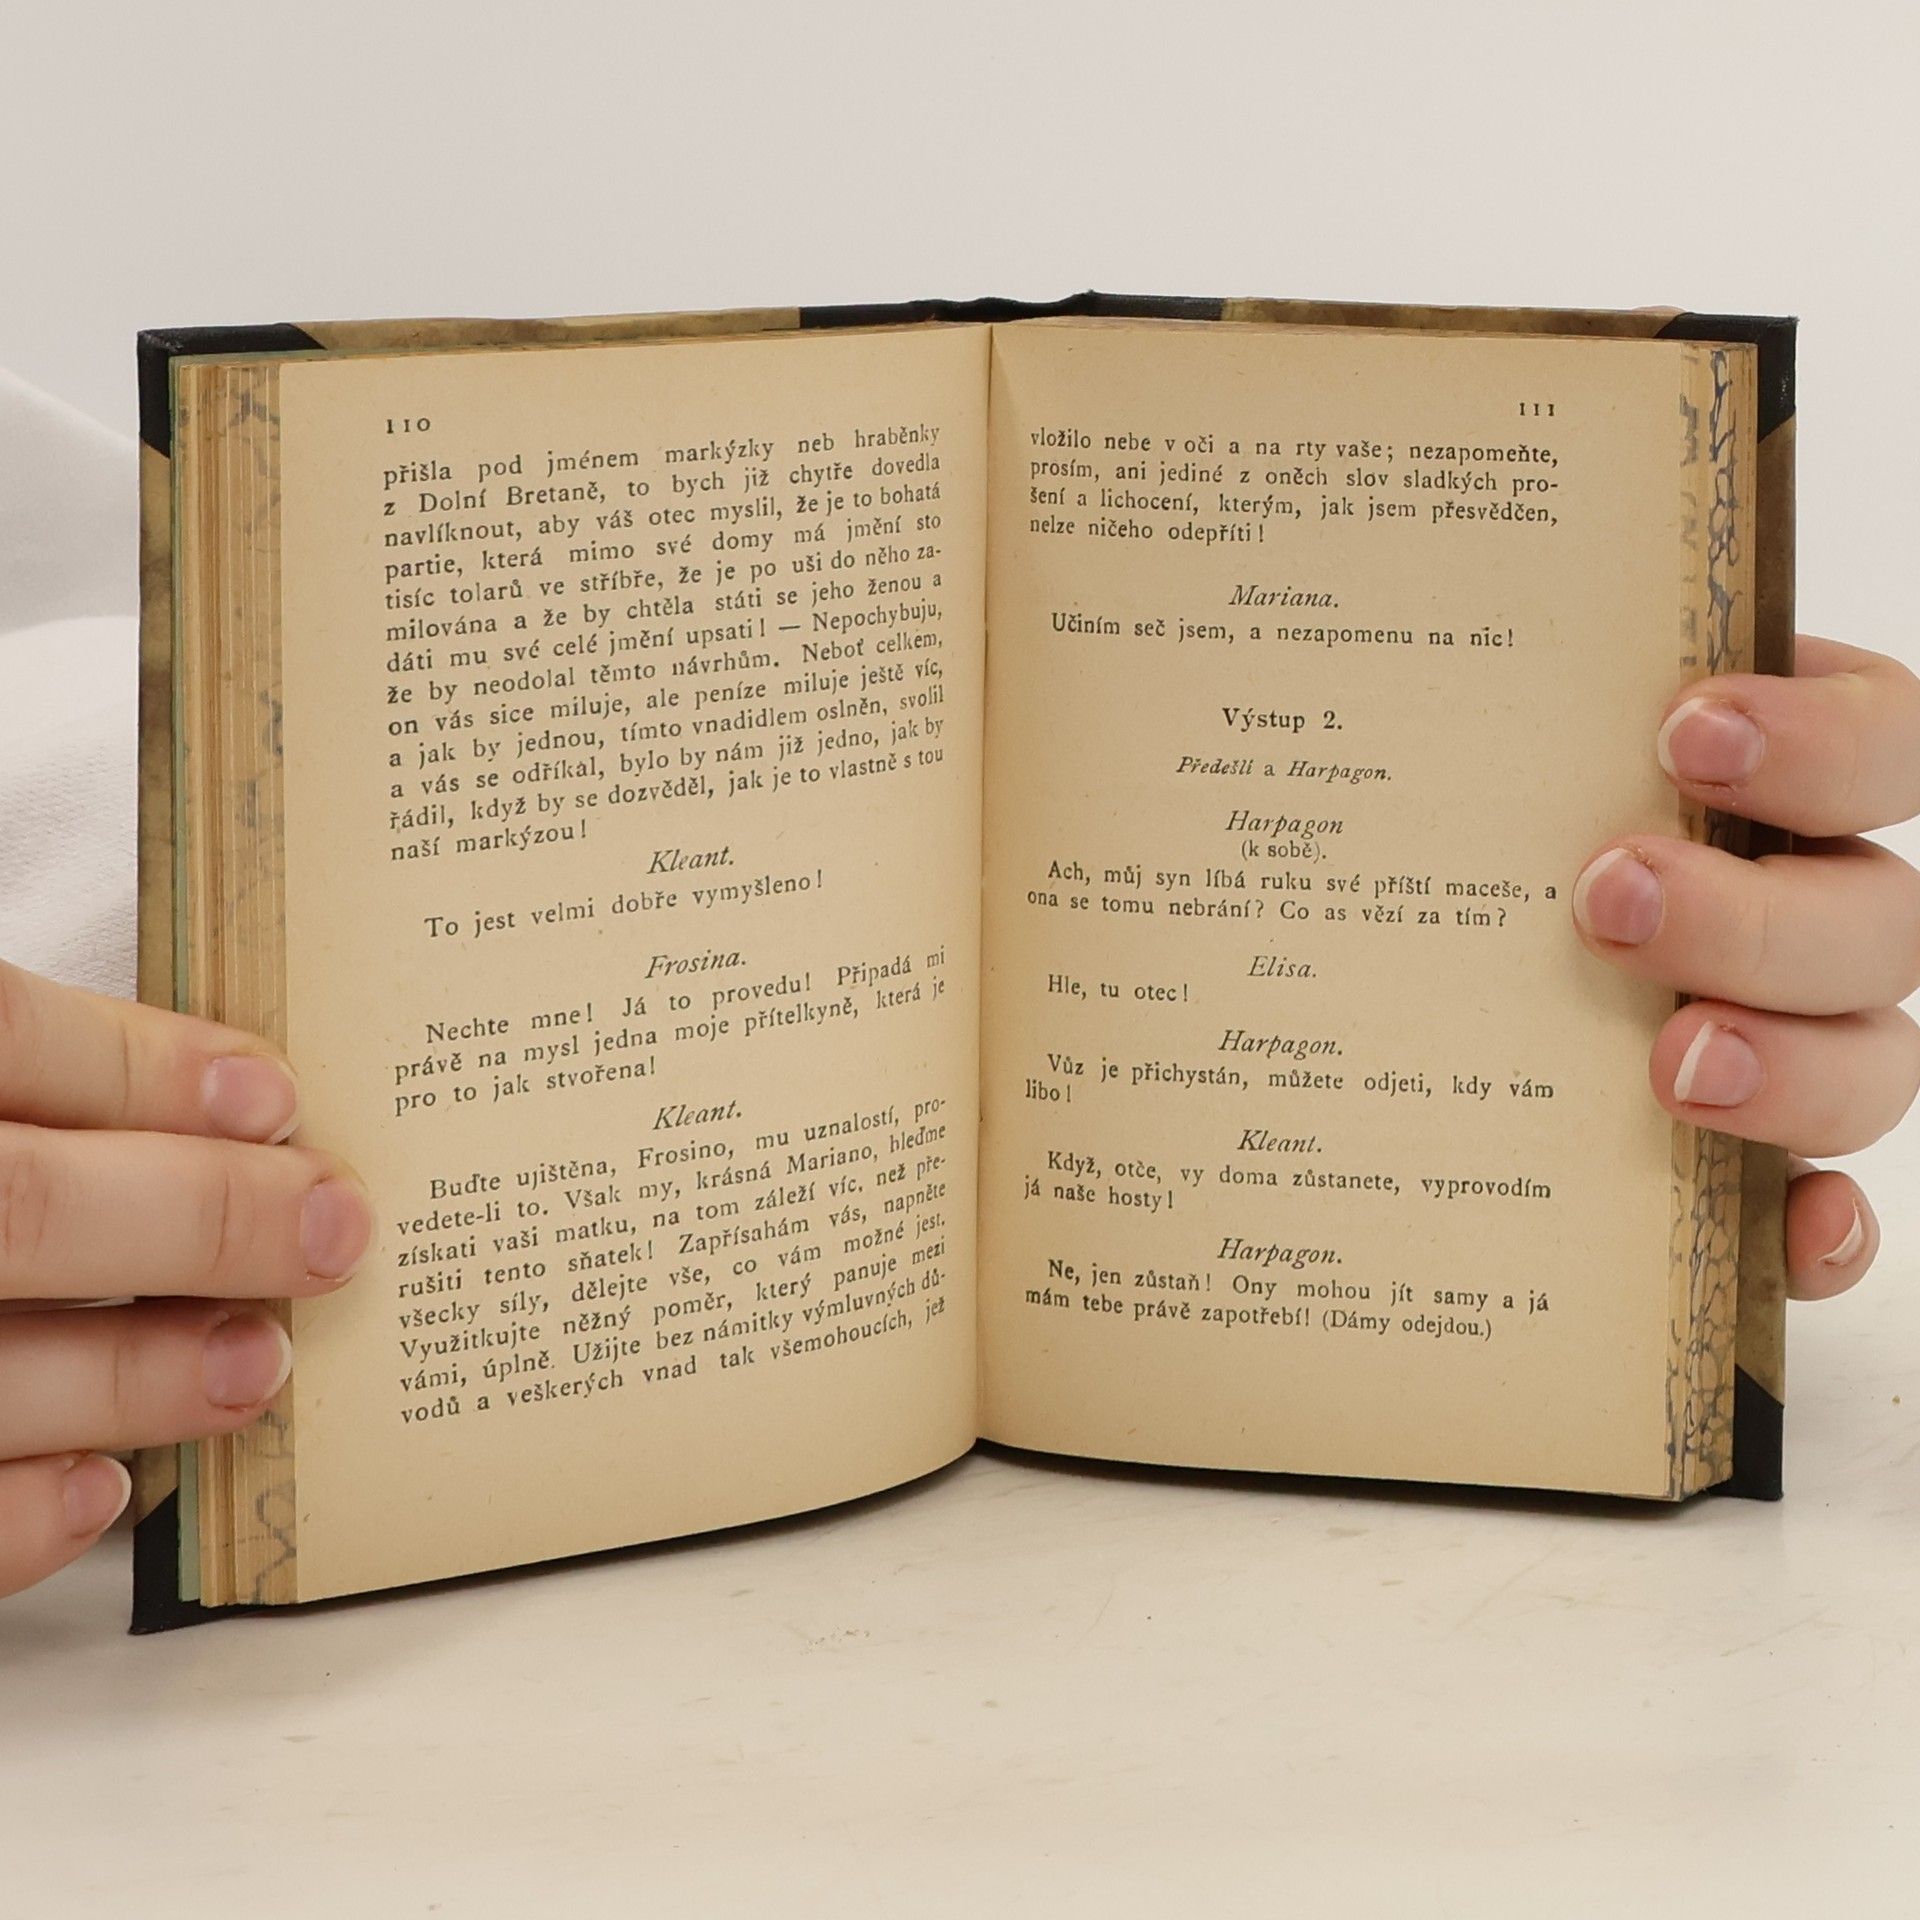 110
přišla pod jménem markýzky neb hraběnky
z Dolní Bretaně, to bych již chytře dovedla
navlíknout, aby váš otec myslil, že je to bohatá
partie, která mimo své domy má jmění sto
tisíc tolarů ve stříbře, že je po uši do něho za-
milována a že by chtěla státi se jeho ženou a
dáti mu své celé jmění upsati! — Nepochybuju,
že by neodolal těmto návrhům. Neboť celkem,
on vás sice miluje, ale peníze miluje ještě víc,
a jak by jednou, tímto vnadidlem oslněn, svolil
a vás se odříkal, bylo by nám již jedno, jak by
řádil, když by se dozvěděl, jak je to vlastně s tou
naší markýzou!
Kleant.
To jest velmi dobře vymyšleno!
Frosina.
Nechte mne! Já to provedu! Připadá mi
právě na mysl jedna moje přítelkyně, která je
pro to jak stvořena!
Kleant.
Buďte ujištěna, Frosino, mu uznalostí, pro-
vedete-li to. Však my, krásná Mariano, hleďme
získati vaši matku, na tom záleží víc, než pře-
rušiti tento sňatek! Zapřísahám vás, napněte
všecky síly, dělejte vše, co vám možné jest.
Využitkujte něžný poměr, který panuje mezi
vámi, úplně. Užijte bez námitky výmluvných dů-
vodů a veškerých vnad tak všemohoucích, jež
111
vložilo nebe v oči a na rty vaše; nezapomeňte,
prosím, ani jediné z oněch slov sladkých pro-
šení a lichocení, kterým, jak jsem přesvědčen,
nelze ničeho odepříti!
Mariana.
Učiním seč jsem, a nezapomenu na nic!
Výstup 2.
Předešlí a Harpagon.
Harpagon
(k sobě).
Ach, můj syn líbá ruku své příští maceše, a
ona se tomu nebrání? Co as vězí za tím?
Elisa.
Hle, tu otec!
Harpagon.
Vůz je přichystán, můžete odjeti, kdy vám
libo!
Kleant.
Když, otče, vy doma zůstanete, vyprovodím
já naše hosty!
Harpagon.
Ne, jen zůstaň! Ony mohou jít samy a já
mám tebe právě zapotřebí! (Dámy odejdou.)